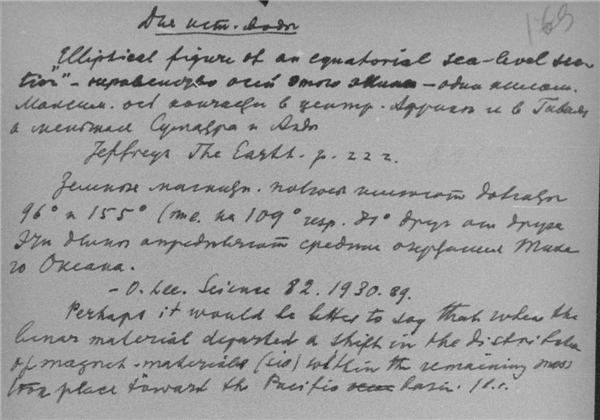 Для ист. воды
169
"Elliptical figure of an equatorial sea-level sec-
tion" – неравенство осей этого – одна
Максим. ось в центр. Африке и в
а Суматра и Анды
Jeffreys The Earth. p. 222.
Земные магнитн. полюсы
96° и 155° (т.е. на 109° resp. 71° друг от друга
Эти данные определяют средние очертания Тихо
го Океана.
– O. Lee. Science 82. 1930. 89.
Perhaps it would be better to say that when the
lunar material departed a shift in the distribution
of magnet-materials (sic) within the remaining mass
took place toward the Pacific basin. l.c.